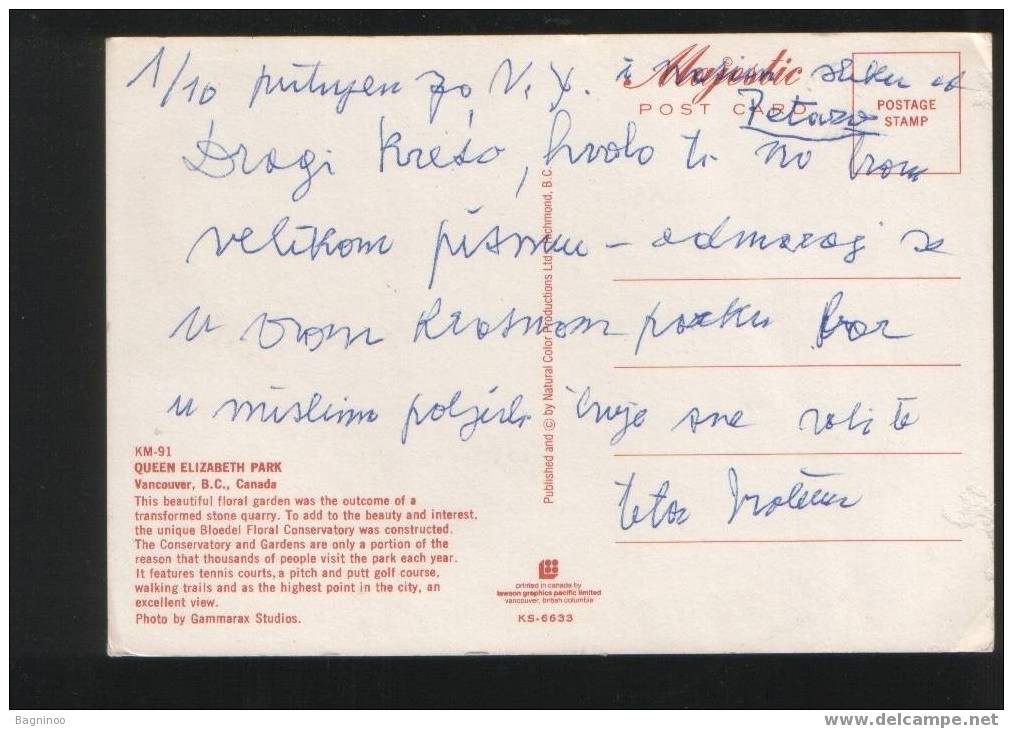 1/10 putujem za N.Y. i sliku od
Petara
Majestic
POST CARD
POSTAGE
STAMP
Dragi Krešo, hvala ti na tvom
velikom pismu - odmaraj se
u tvom krasnom parku
u mislima tvoje sve voli te
teta
KM-91
QUEEN ELIZABETH PARK
Vancouver, B.C., Canada
This beautiful floral garden was the outcome of a
transformed stone quarry. To add to the beauty and interest,
the unique Bloedel Floral Conservatory was constructed.
The Conservatory and Gardens are only a portion of the
reason that thousands of people visit the park each year.
It features tennis courts, a pitch and putt golf course,
walking trails and as the highest point in the city, an
excellent view.
Photo by Gammarax Studios.
Published and © by Natural Color Productions Ltd., Richmond, B.C.
printed in canada by
lawson graphics pacific limited
vancouver, british columbia
KS-6633
Bagninoo
www.delcampe.net